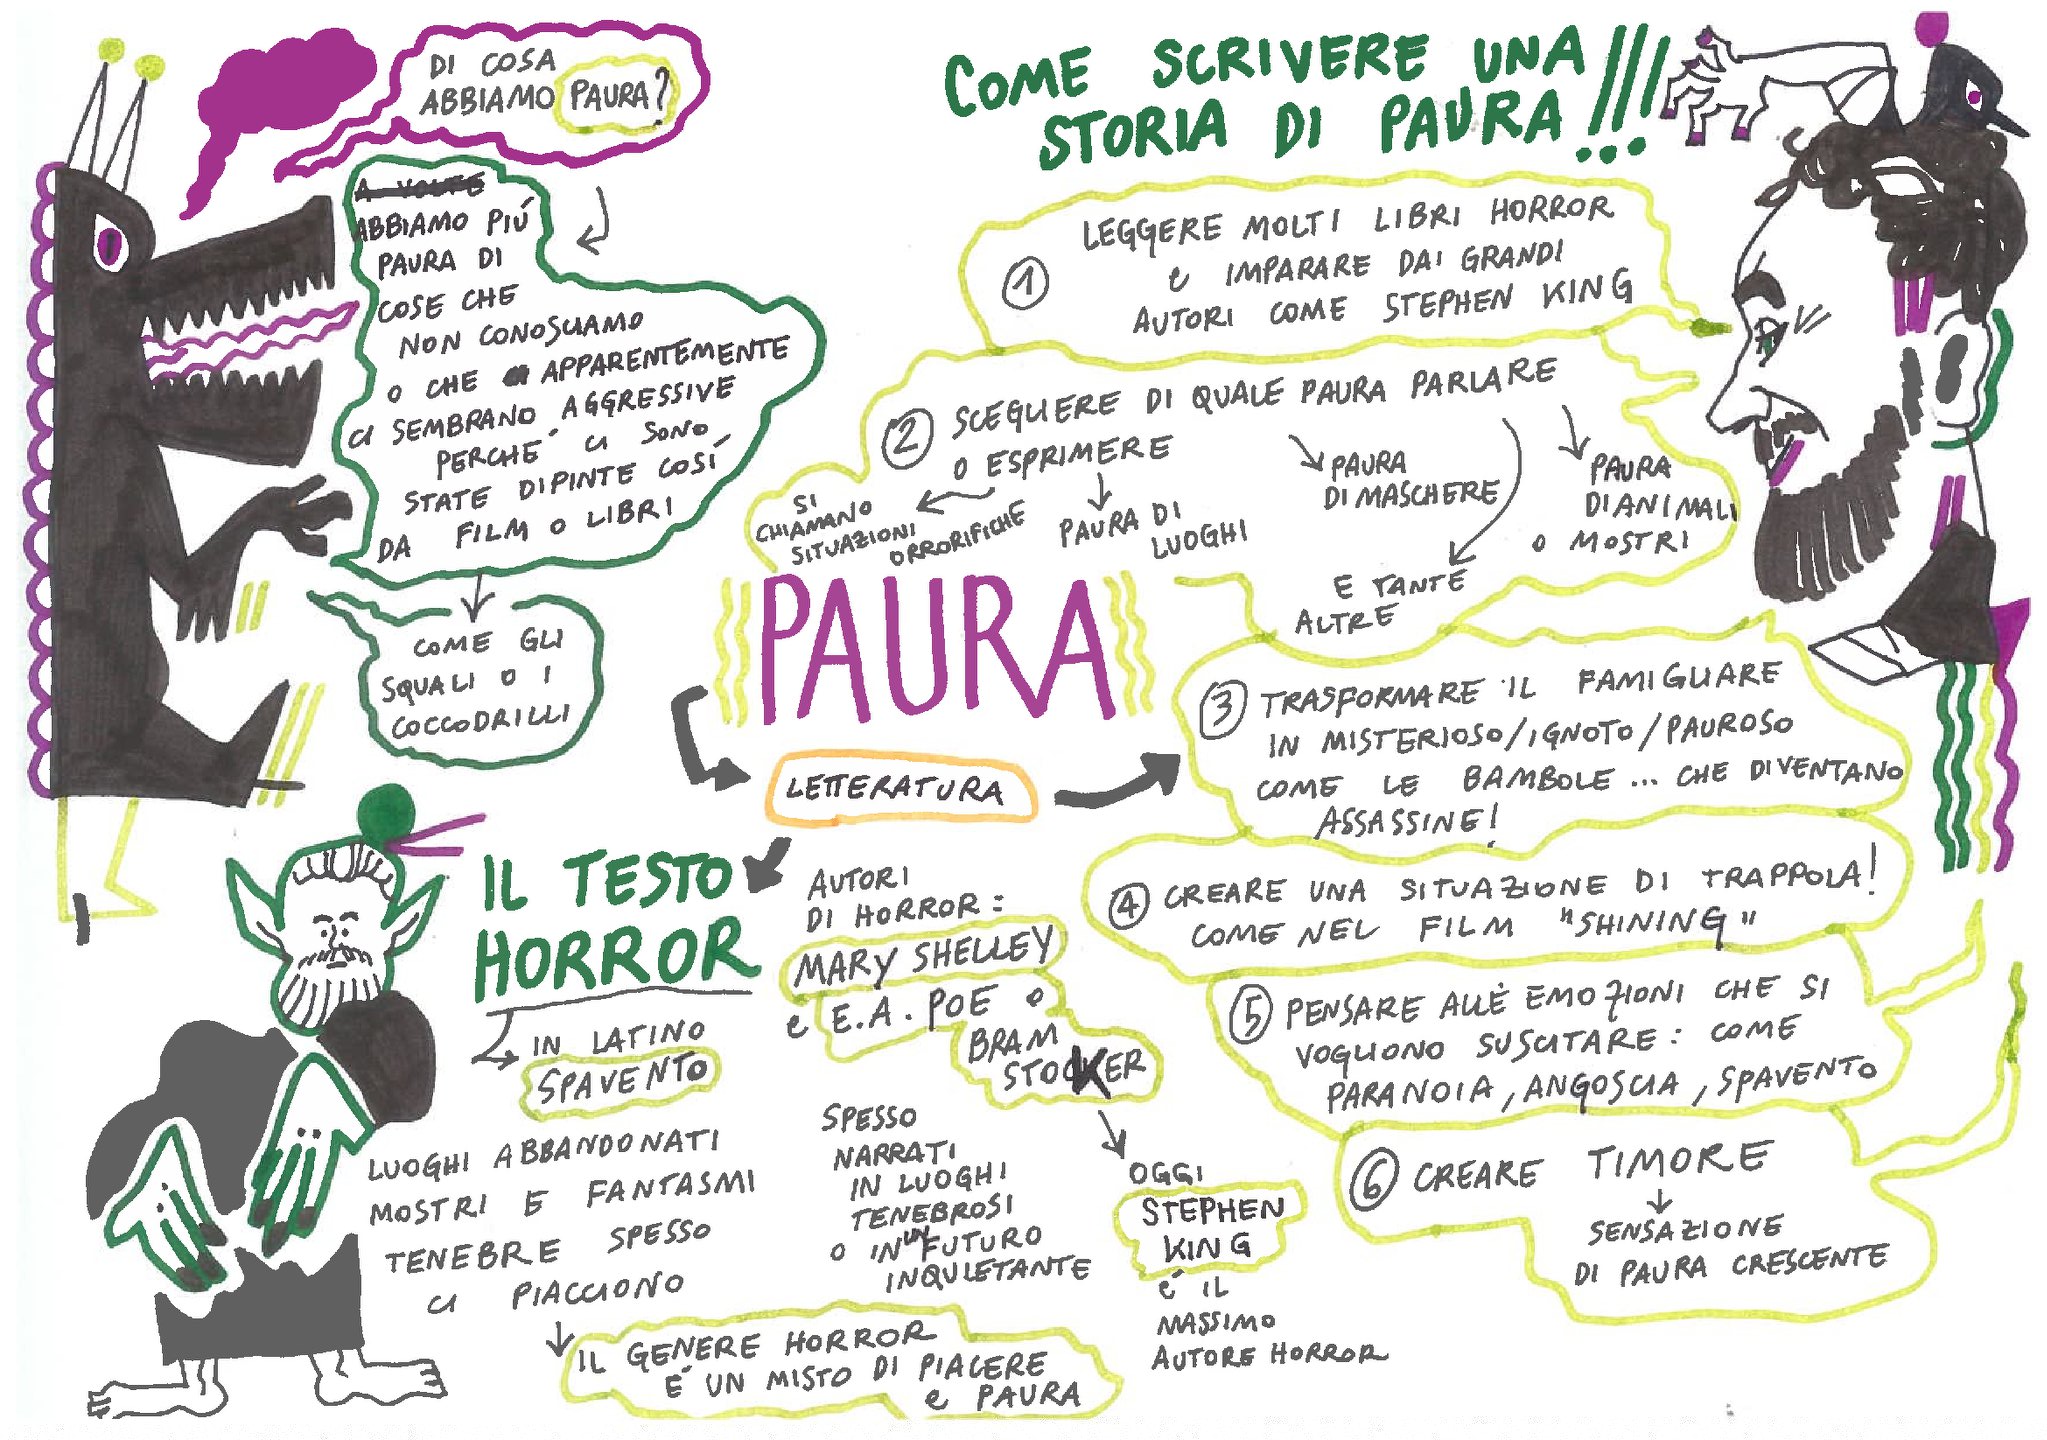 DI COSA
ABBIAMO PAURA?
A VOLTE
ABBIAMO PIÚ
PAURA DI
COSE CHE
NON CONOSCIAMO
O CHE APPARENTEMENTE
CI SEMBRANO AGGRESSIVE
PERCHE' CI SONO
STATE DIPINTE COSÍ
DA FILM O LIBRI
COME GLI
SQUALI O I
COCCODRILLI
COME SCRIVERE UNA
STORIA DI PAURA!!!
1 LEGGERE MOLTI LIBRI HORROR
e IMPARARE DAI GRANDI
AUTORI COME STEPHEN KING
2 SCEGLIERE DI QUALE PAURA PARLARE
O ESPRIMERE
SI
CHIAMANO
SITUAZIONI
ORRORIFICHE
PAURA DI
LUOGHI
PAURA
DI MASCHERE
PAURA
DI ANIMALI
O MOSTRI
E TANTE
ALTRE
PAURA
LETTERATURA
3 TRASFORMARE IL FAMIGLIARE
IN MISTERIOSO/IGNOTO/PAUROSO
COME LE BAMBOLE... CHE DIVENTANO
ASSASSINE!
4 CREARE UNA SITUAZIONE DI TRAPPOLA!
COME NEL FILM "SHINING"
5 PENSARE ALLE EMOZIONI CHE SI
VOGLIONO SUSCITARE: COME
PARANOIA, ANGOSCIA, SPAVENTO
6 CREARE TIMORE
SENSAZIONE
DI PAURA CRESCENTE
IL TESTO
HORROR
IN LATINO
SPAVENTO
LUOGHI ABBANDONATI
MOSTRI E FANTASMI
TENEBRE SPESSO
CI PIACCIONO
IL GENERE HORROR
É UN MISTO DI PIACERE
e PAURA
AUTORI
DI HORROR:
MARY SHELLEY
e E.A. POE O
BRAM
STOCKER
SPESSO
NARRATI
IN LUOGHI
TENEBROSI
O IN UN FUTURO
INQUIETANTE
OGGI
STEPHEN
KING
é IL
MASSIMO
AUTORE HORROR